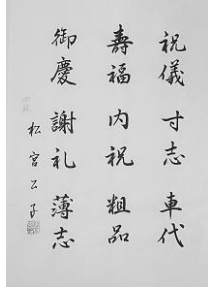 祝儀 寸志 車代
寿福 内祝 粗品
御慶 謝礼 薄志
松宮公子